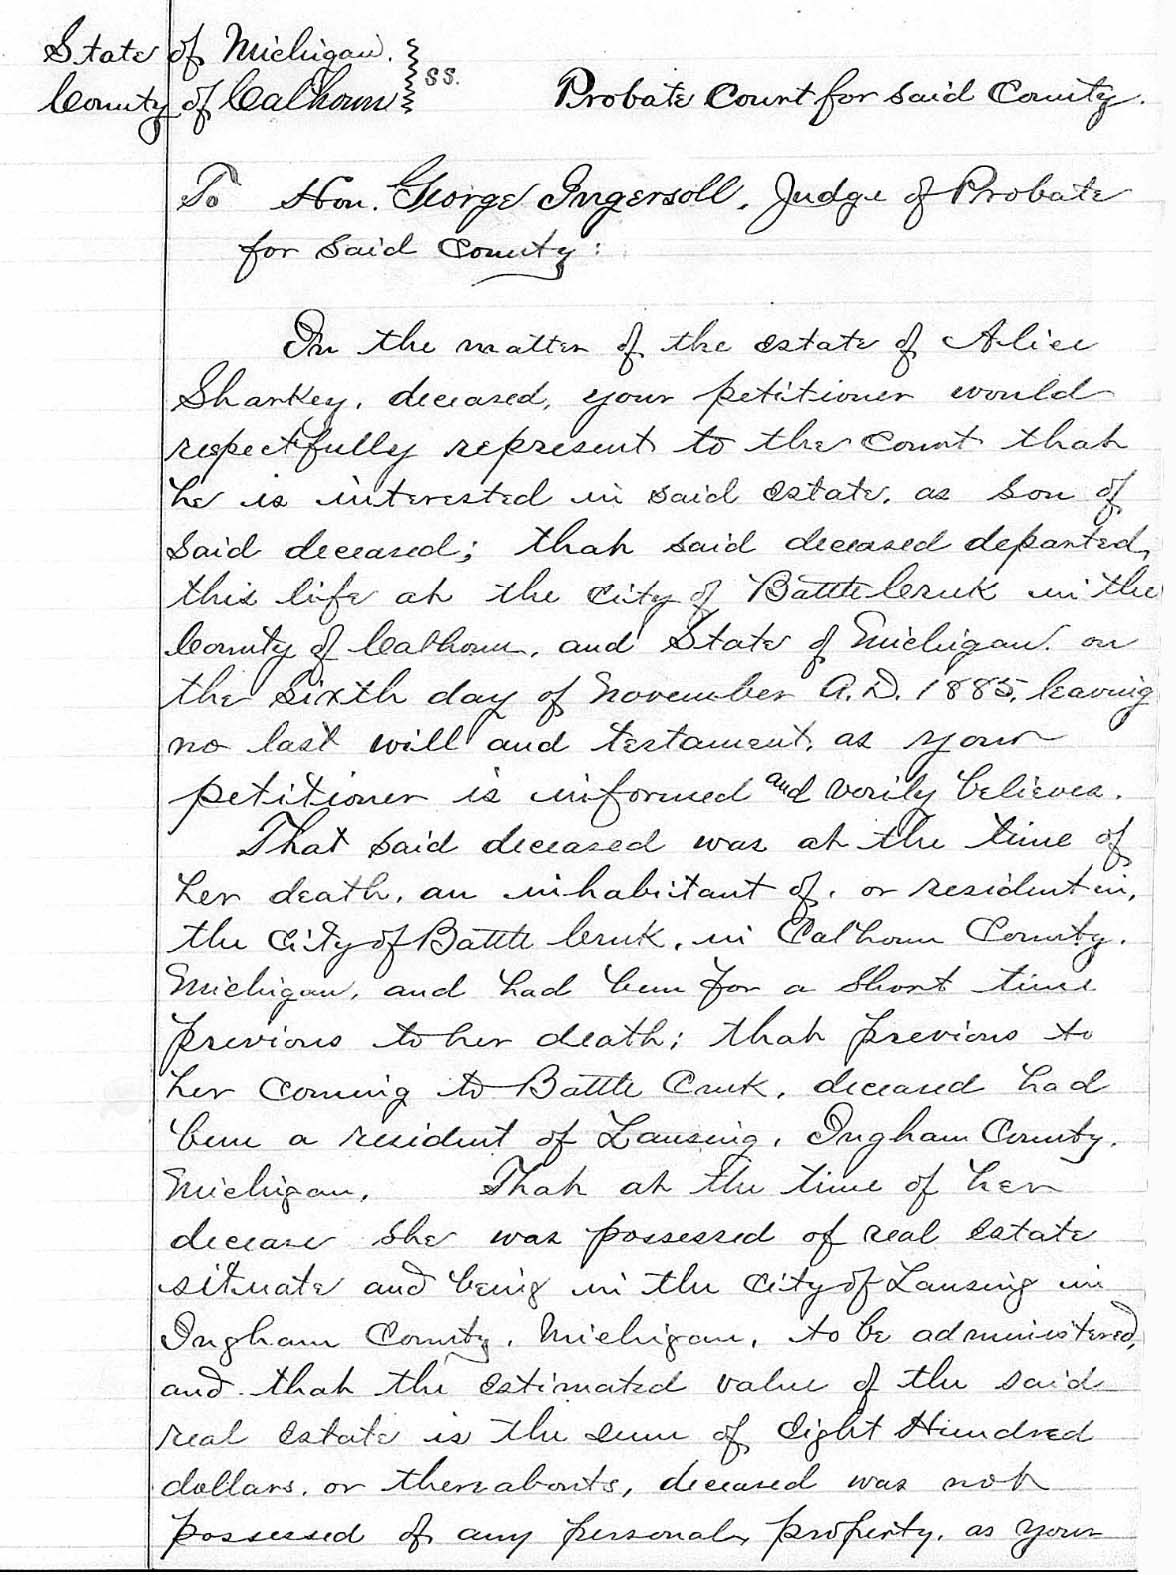 State of Michigan.
County of Calhoun } ss. Probate Court for said County.
To Hon. George Ingersoll, Judge of Probate
for said County:
In the matter of the estate of Alice
Sharkey, deceased, your petitioner would
respectfully represent to the Court that
he is interested in said estate, as son of
said deceased; that said deceased departed
this life at the City of Battle Creek in the
County of Calhoun, and State of Michigan, on
the sixth day of November A.D. 1885, leaving
no last will and testament, as your
petitioner is informed and verily believes.
That said deceased was at the time of
her death, an inhabitant of, or resident in,
the City of Battle Creek, in Calhoun County,
Michigan, and had been for a short time
previous to her death; that previous to
her coming to Battle Creek, deceased had
been a resident of Lansing, Ingham County,
Michigan. That at the time of her
decease she was possessed of real estate
situate and being in the City of Lansing in
Ingham County, Michigan, to be administered,
and that the estimated value of the said
real estate is the sum of Eight Hundred
dollars, or thereabouts, deceased was not
possessed of any personal property, as your